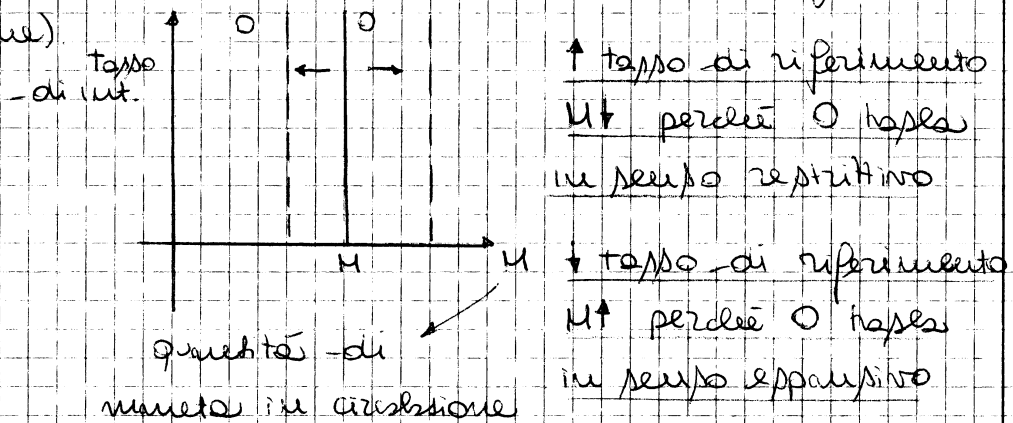 ue)
tasso
di int.
O O
M M
quantità di
moneta in circolazione
↑ tasso di riferimento
M↓ perché O trasla
in senso restrittivo
↓ tasso di riferimento
M↑ perché O trasla
in senso espansivo